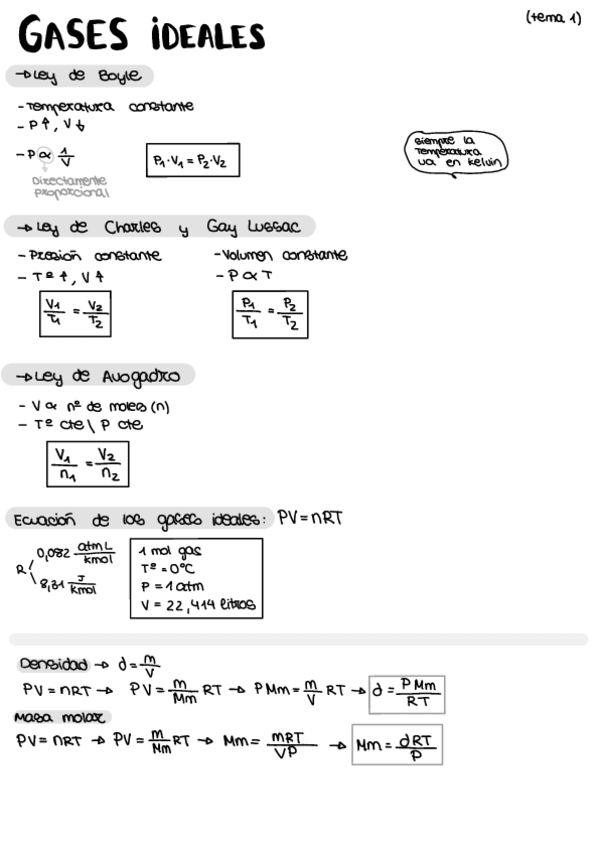 (tema 1)
GASES IDEALES
→ Ley de Boyle
- Temperatura constante
- P↑, V↓
- P ∝ 1/V
Directamente
proporcional
P₁·V₁ = P₂·V₂
Siempre la
temperatura
va en kelvin
→ Ley de Charles y Gay Lussac
- Presión constante
- Tª ↑, V ↑
V₁/T₁ = V₂/T₂
- Volumen constante
- P ∝ T
P₁/T₁ = P₂/T₂
→ Ley de Avogadro
- V ∝ nº de moles (n)
- Tª cte \ P cte
V₁/n₁ = V₂/n₂
Ecuación de los gases ideales: PV = nRT
R
0,082 atm L/kmol
8,31 J/kmol
1 mol gas
Tª = 0ºC
P = 1 atm
V = 22,414 litros
Densidad → d = m/V
PV = nRT → PV = m/Mm RT → P Mm = m/V RT → d = P Mm/RT
Masa molar
PV = nRT → PV = m/Mm RT → Mm = mRT/VP → Mm = dRT/P